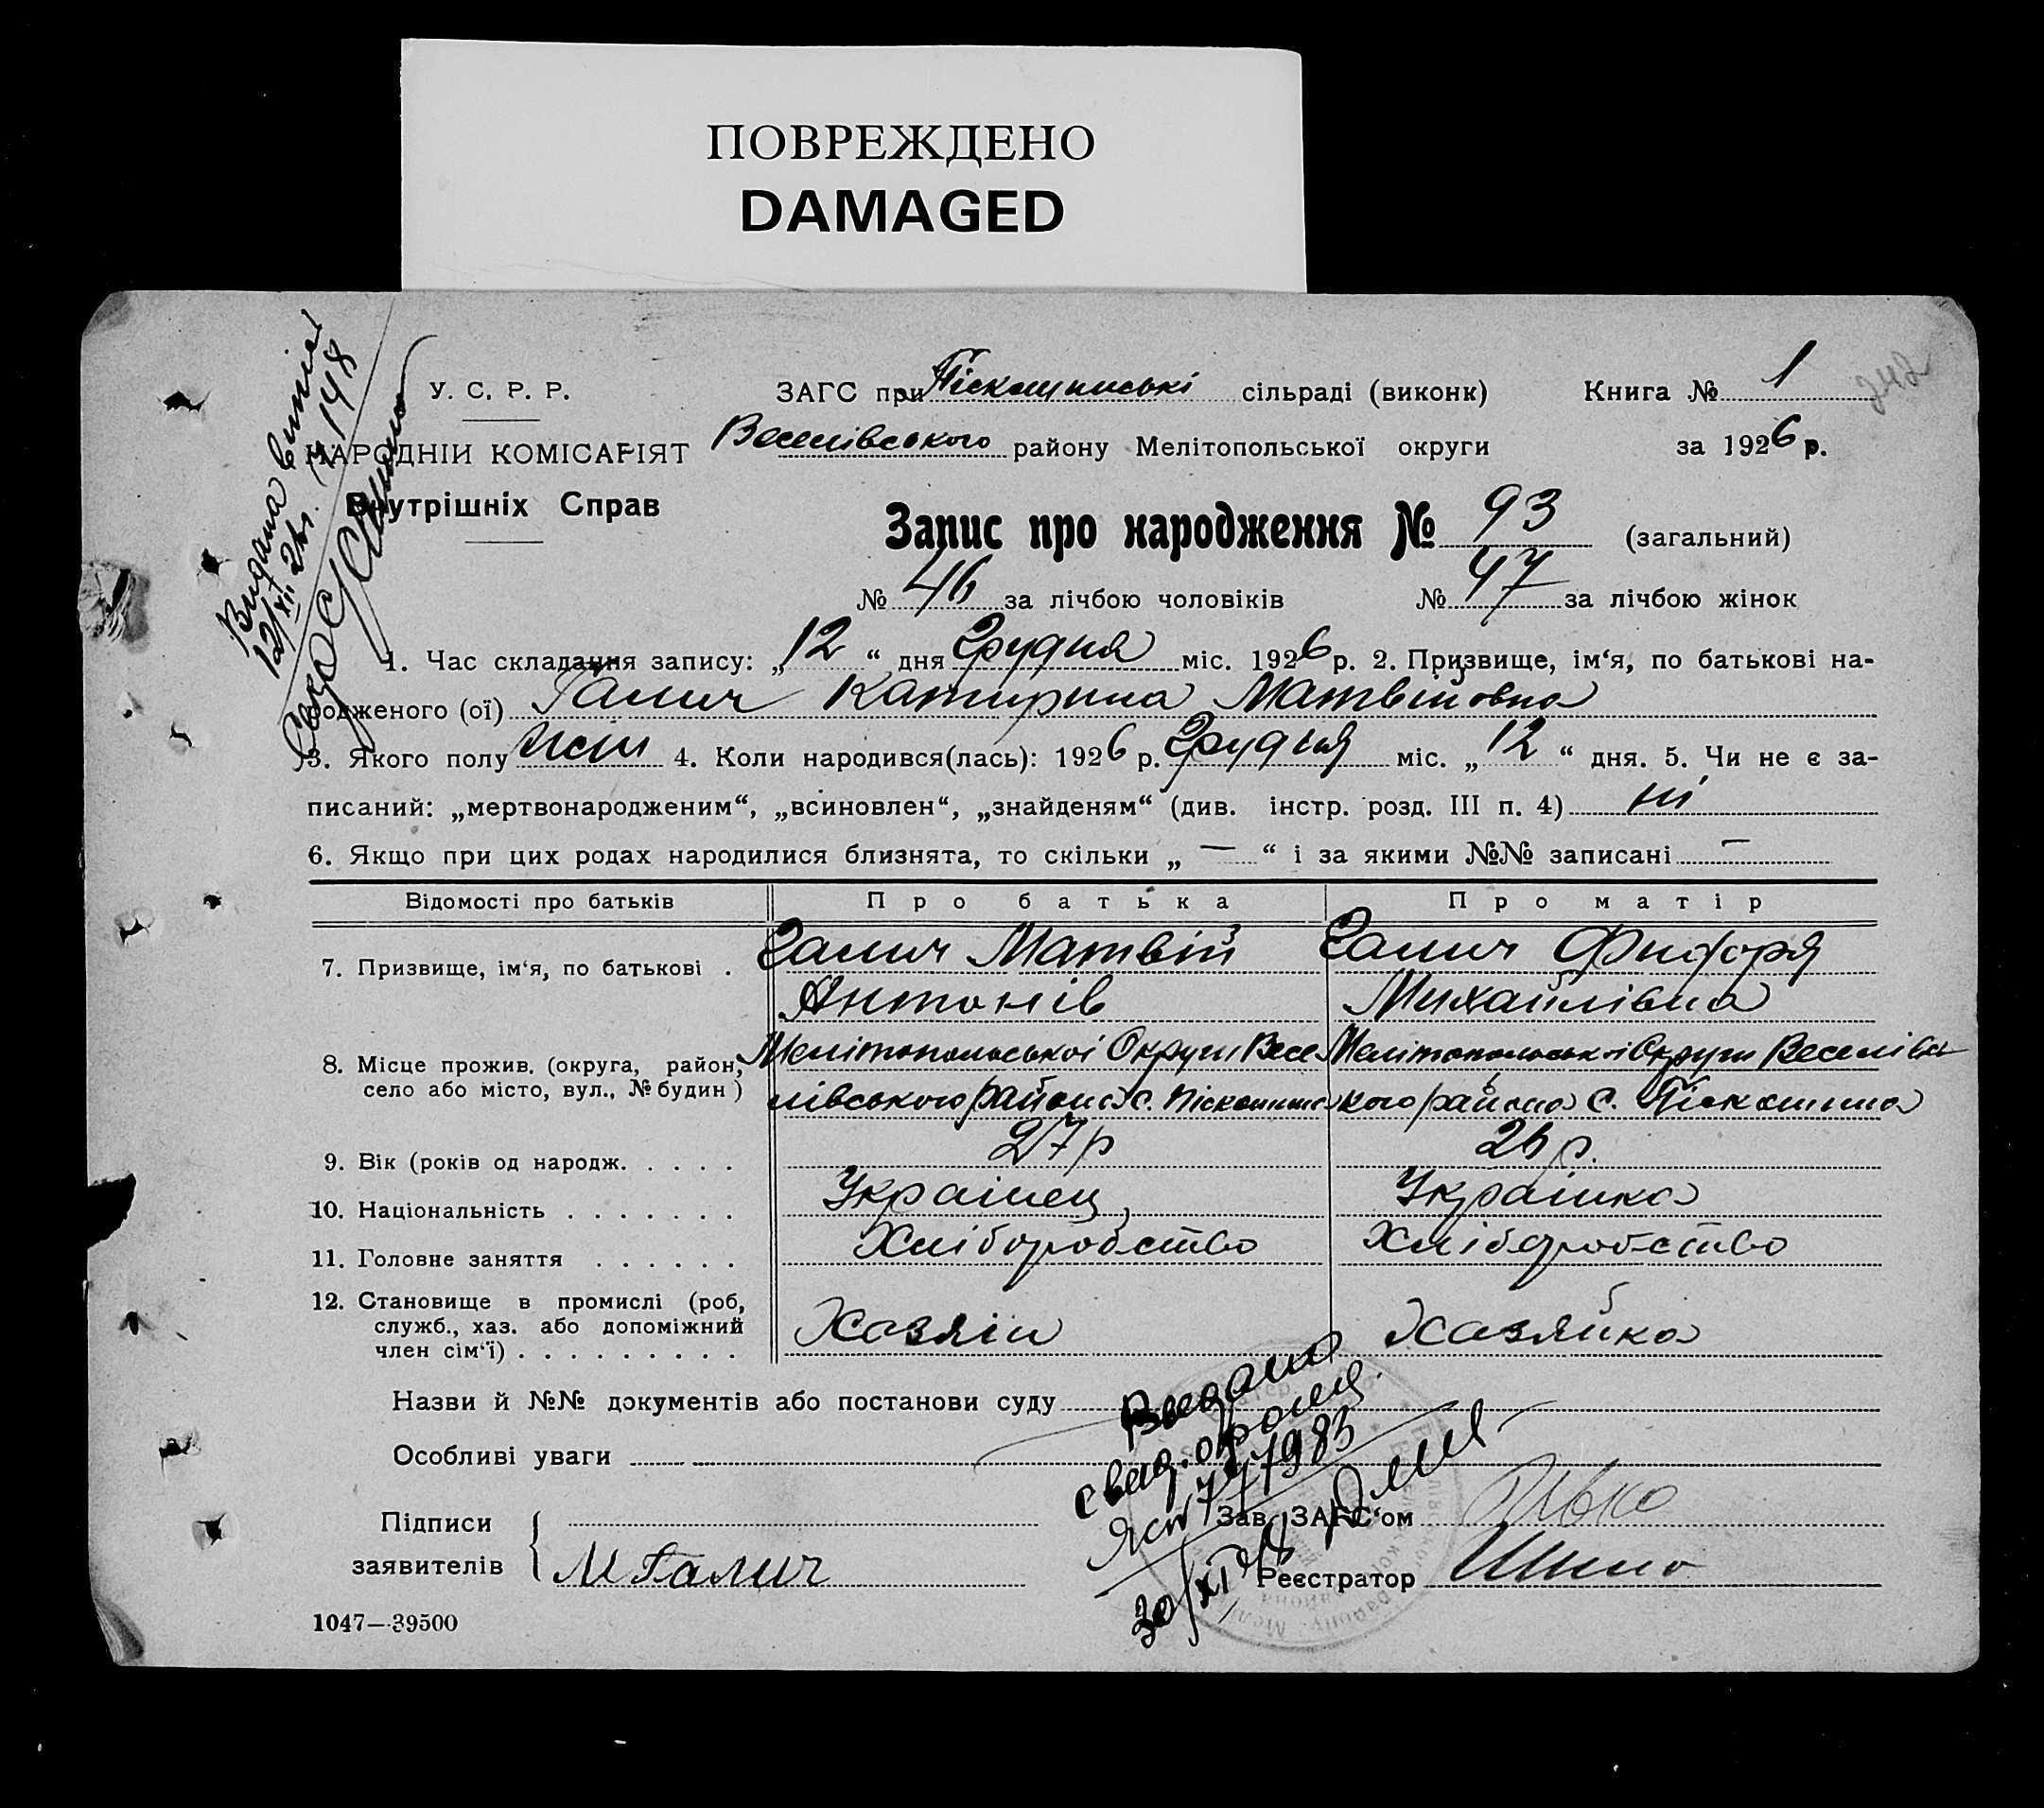 ПОВРЕЖДЕНО
DAMAGED
У. С. Р. Р.
ЗАГС при Піскошинські сільраді (виконк)
Книга № 1
242
НАРОДНІЙ КОМІСАРІЯТ
Веселівського району Мелітопольської округи
за 1926 р.
Внутрішніх Справ
Запис про народження № 93 (загальний)
№ 46 за лічбою чоловіків № 47 за лічбою жінок
Видана
1. Час складання запису: „12“ дня Грудня міс. 1926 р. 2. Призвище, ім‘я, по батькові на-
родженого (ої) Галич Катирина Матвійовна
3. Якого полу жін 4. Коли народився(лась): 1926 р. Грудня міс. „12“ дня. 5. Чи не є за-
писаний: „мертвонародженим“, „всиновлен“, „знайденям“ (див. інстр. розд. III п. 4) ні
6. Якщо при цих родах народилися близнята, то скільки „ — “ і за якими №№ записані —
Відомості про батьків Про батька Про матір
7. Призвище, ім‘я, по батькові . Галич Матвій Галич Фидоря
Антонів Михайлівна
8. Місце прожив. (округа, район, Мелітопольської Округи Весе Мелітопольської Округи Веселівсь
село або місто, вул., № будин) лівського району с. Піскошина кого района с. Піскошина
9. Вік (років од народж. . . . . 27 р 26 р.
10. Національність . . . . . . . Українец Українка
11. Головне заняття . . . . . . Хліборобство Хліборобство
12. Становище в промислі (роб,
служб., хаз. або допоміжний Хазяін Хазяйка
член сім‘ї) . . . . . . . . .
Назви й №№ документів або постанови суду
Особливі уваги
Підписи
заявителів М Галич
Зав. ЗАГС‘ом
Реєстратор
1047—39500